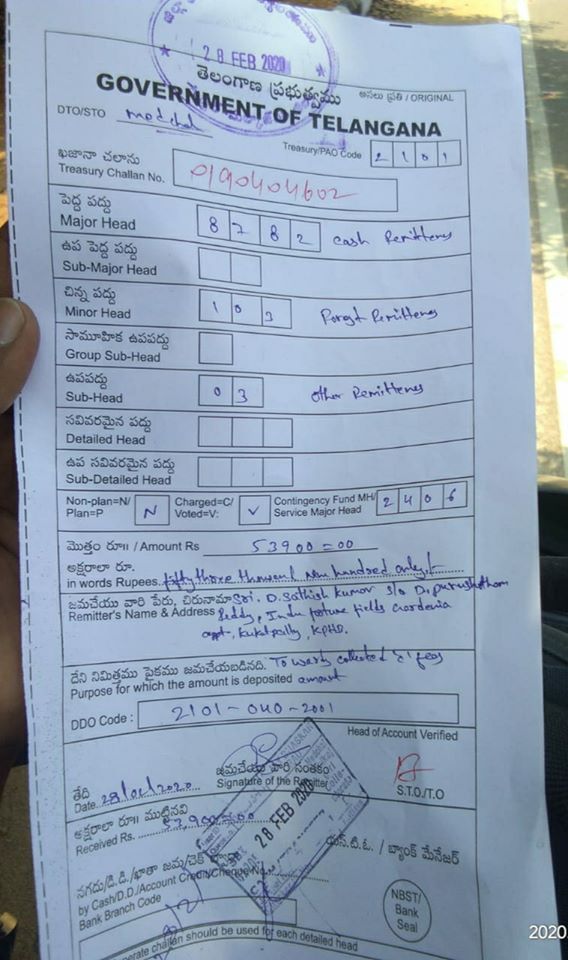 28 FEB 2020
తెలంగాణ ప్రభుత్వము
అసలు ప్రతి / ORIGINAL
GOVERNMENT OF TELANGANA
DTO/STO
Treasury/PAO Code 2101
ఖజానా చలాను
Treasury Challan No. 0190404602
పెద్ద పద్దు
Major Head 8782 Cash Remittens
ఉప పెద్ద పద్దు
Sub-Major Head
చిన్న పద్దు
Minor Head 103 Forest Remittens
సామూహిక ఉపపద్దు
Group Sub-Head
ఉపపద్దు
Sub-Head 03 Other Remittens
సవివరమైన పద్దు
Detailed Head
ఉప సవివరమైన పద్దు
Sub-Detailed Head
Non-plan=N/ Plan=P N Charged=C/ Voted=V: V Contingency Fund MH/ Service Major Head 2406
మొత్తం రూ॥ / Amount Rs 53900=00
అక్షరాలా రూ.
in words Rupees. fifty three thousand nine hundred only/-
జమచేయు వారి పేరు, చిరునామా Sri. D. Sathish kumar s/o D. purushotham
Remitter's Name & Address Reddy, Indu fortune fields Gardenia
appt, Kukatpally, KPHB.
దేని నిమిత్తము పైకము జమచేయబడినది. To wards collected 'c' fees
Purpose for which the amount is deposited amount
DDO Code : 2101-040-2001
Head of Account Verified
తేది
Date 28/02/2020
జమచేయు వారి సంతకం
Signature of the Remitter
S.T.O./T.O
28 FEB 2020
అక్షరాలా రూ॥ ముట్టినవి
Received Rs. 53,900=00
నగదు/డి.డి./ఖాతా జమ/చెక్
by Cash/D.D./Account Credit/Cheque No.
Bank Branch Code
ఎస్.టి.ఓ. / బ్యాంక్ మేనేజర్
NBST/
Bank
Seal
challan should be used for each detailed head
2020